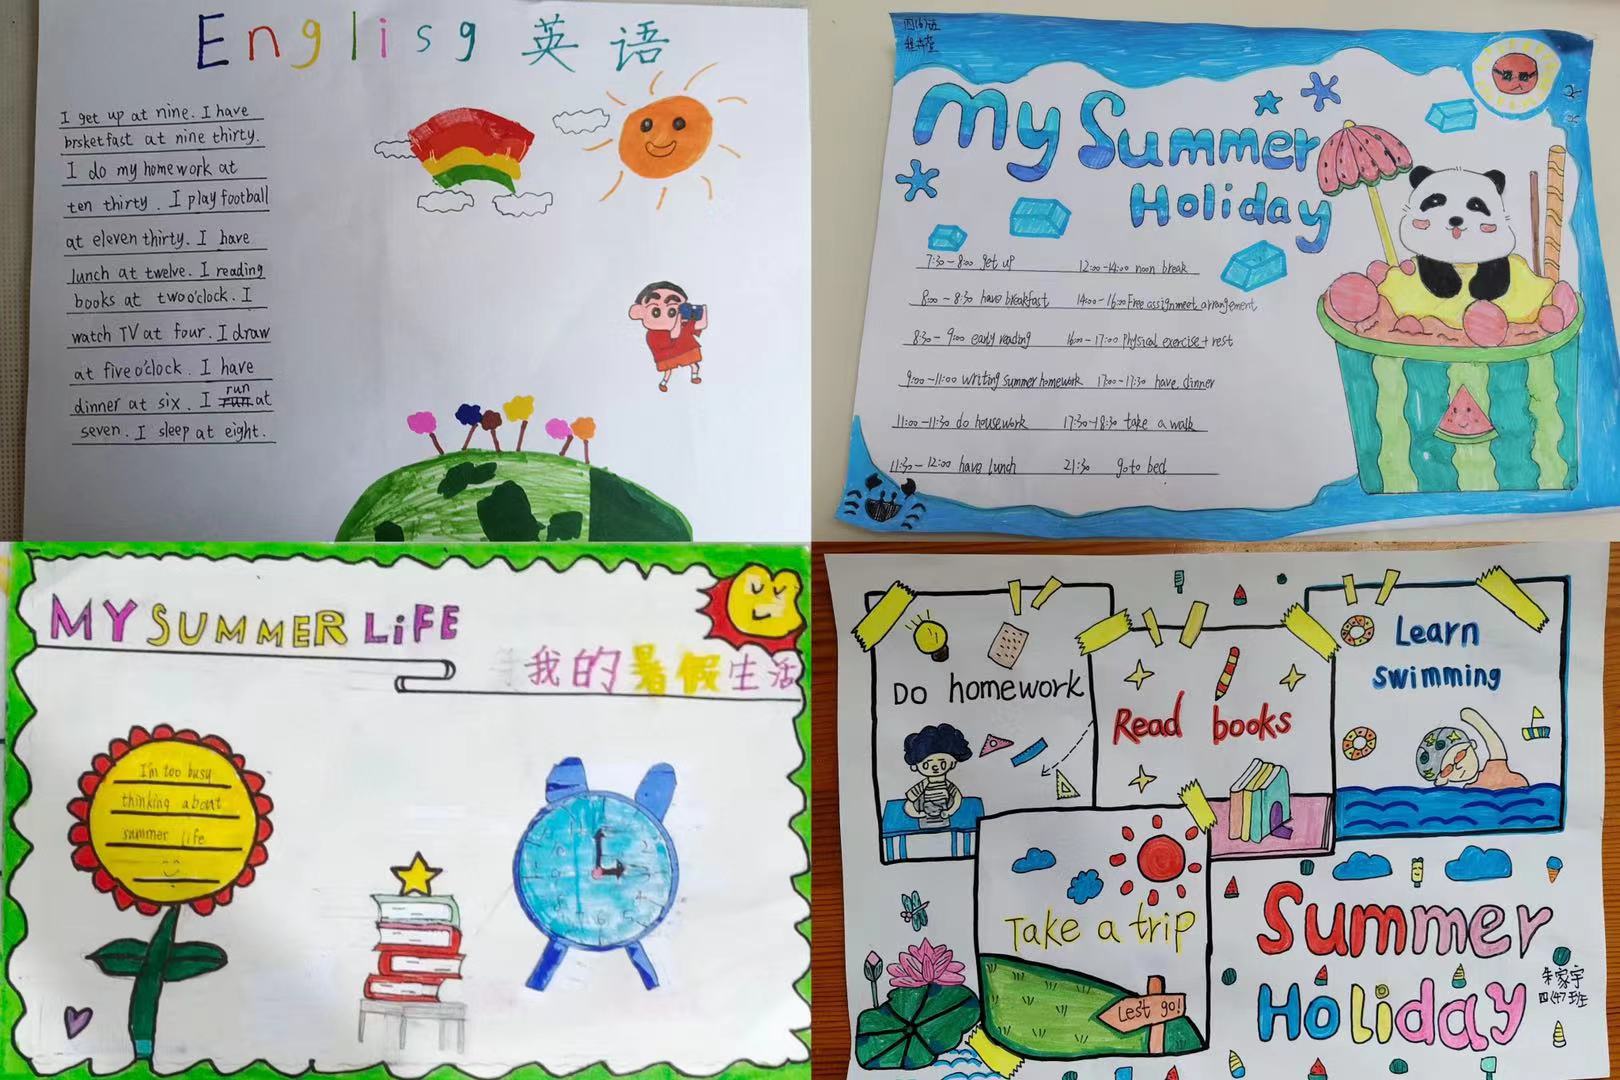 Englisg 英语
I get up at nine. I have
brsketfast at nine thirty.
I do my homework at
ten thirty. I play football
at eleven thirty. I have
lunch at twelve. I reading
books at two o'clock. I
watch TV at four. I draw
at five o'clock. I have
run
dinner at six. I run at
seven. I sleep at eight.
四(6)班
My Summer
Holiday
7:30-8:00 get up
12:00-14:00 noon break
8:00-8:30 have breakfast
14:00-16:00 Free assignmeet arrangement
8:30-9:00 early reading
16:00-17:00 Physical exercise + rest
9:00-11:00 writing summer homework
17:00-17:30 have dinner
11:00-11:30 do housework
17:30-18:30 take a walk
11:30-12:00 have lunch
21:30 go to bed
MY SUMMER LiFE
我的暑假生活
I'm too busy
thinking about
summer life
12
Do homework
Read books
Learn
swimming
Take a trip
Lest go!
Summer
Holiday
朱家宇
四(4)班